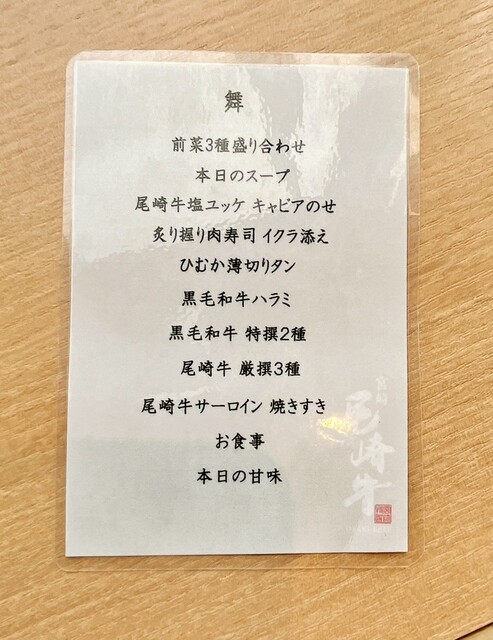 舞
前菜3種盛り合わせ
本日のスープ
尾崎牛塩ユッケ キャビアのせ
炙り握り肉寿司 イクラ添え
ひむか薄切りタン
黒毛和牛ハラミ
黒毛和牛 特撰2種
尾崎牛 厳撰3種
尾崎牛サーロイン 焼きすき
お食事
本日の甘味
宮崎
尾崎牛